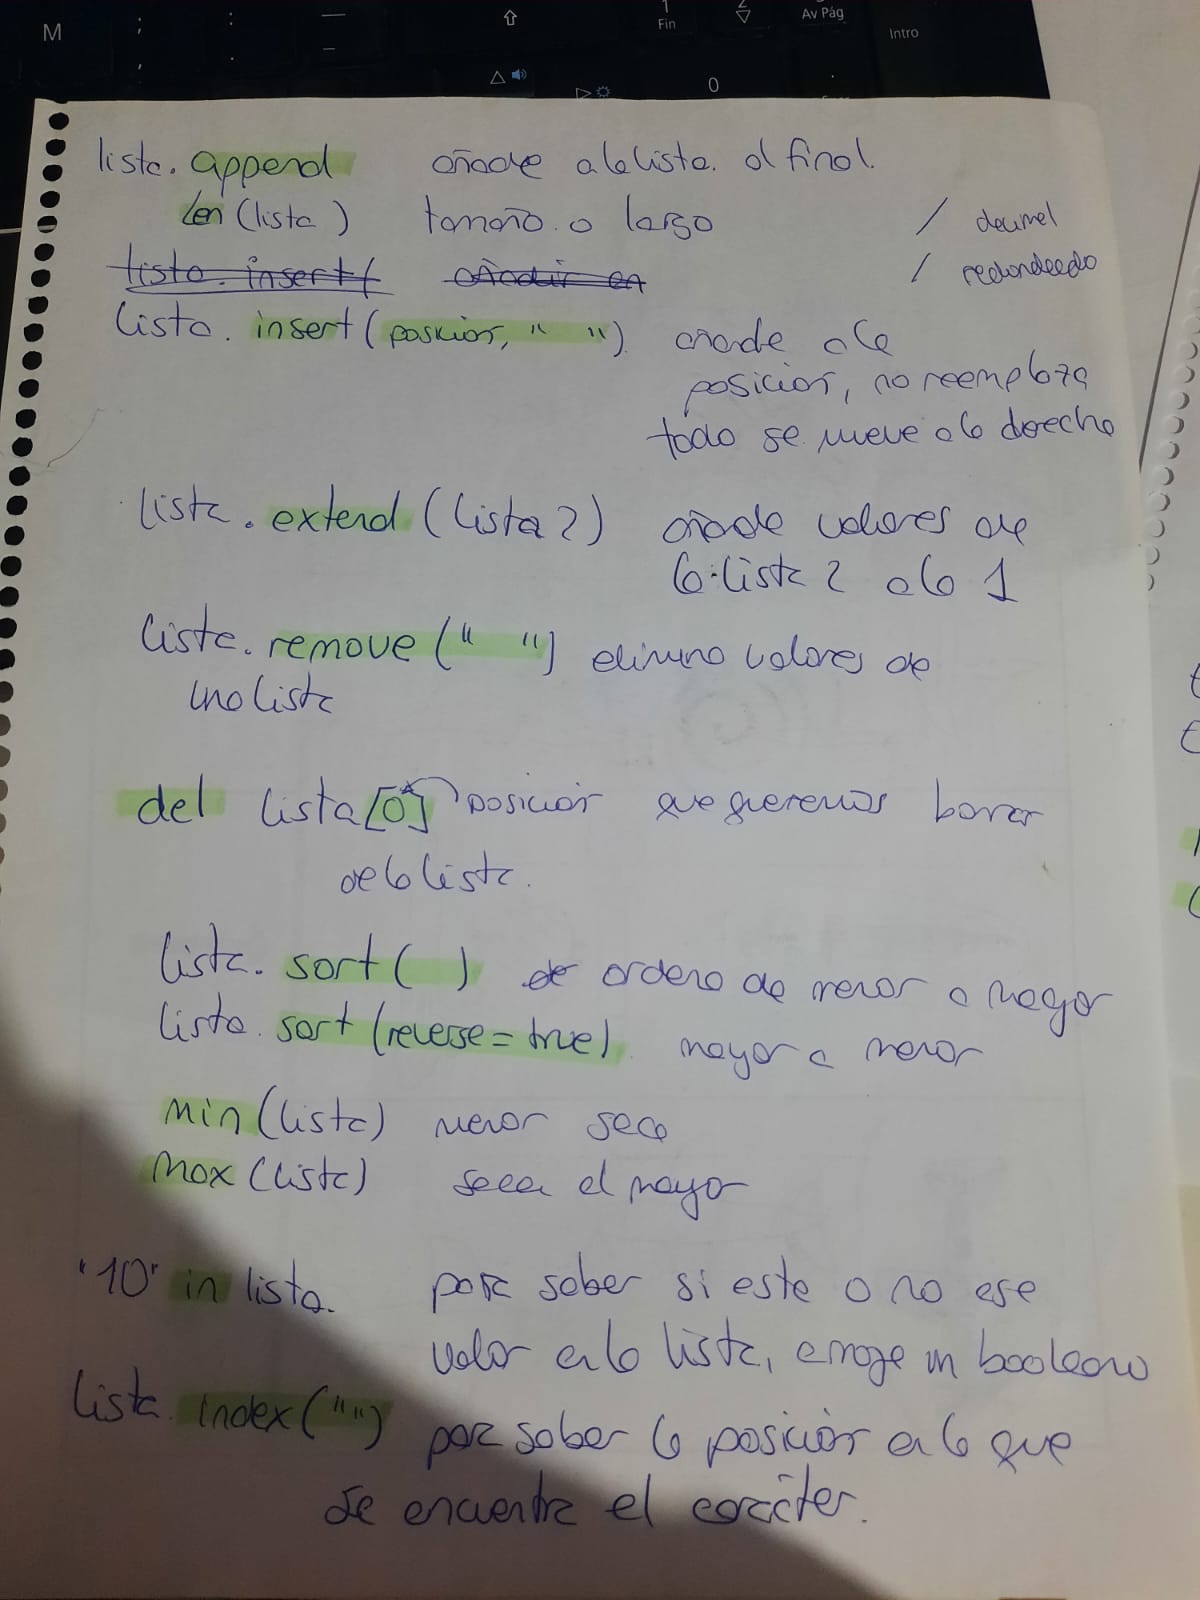 M
;
,
:
.
—
–
⇧
1
Fin
2
▽
Av Pág
Intro
0
.
lista. append añade a la lista. al final.
len (lista) tamaño. o largo / decimal
lista. insert( añadir en / redondeado
lista. insert (posición, " ") añade a la
posición, no reemplaza
todo se mueve a la derecha
lista. extend (lista 2) añade valores de
la lista 2 a la 1
lista. remove (" ") elimino valores de
una lista
del lista [0] posición que queremos borrar
de la lista.
lista. sort ( ) de ordena de menor a mayor
lista. sort (reverse = true) mayor a menor
min (lista) menor saca
max (lista) sacar el mayor
"10" in lista. para saber si este o no ese
valor en la lista, arroja un booleano
lista. index ("") para saber la posición en la que
se encuentra el carácter.